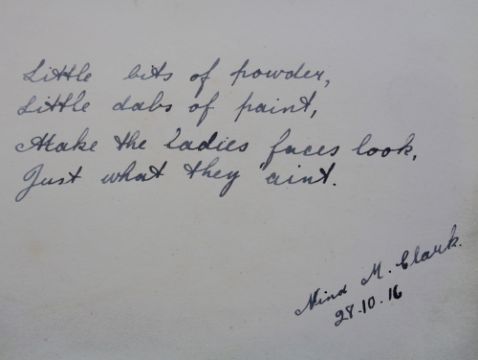 Little bits of powder,
Little dabs of paint,
Make the Ladies faces look,
Just what they 'aint.
M. Clark.
28.10.16